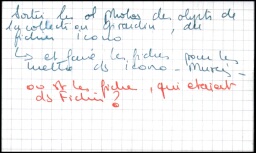 Sortir les of photos des objets de
la collection Girardin, des
fichiers icono
↳ et faire les fiches pour les
mettre ds icono - Musées -
où st les fiches, qui étaient
ds Fichier ?